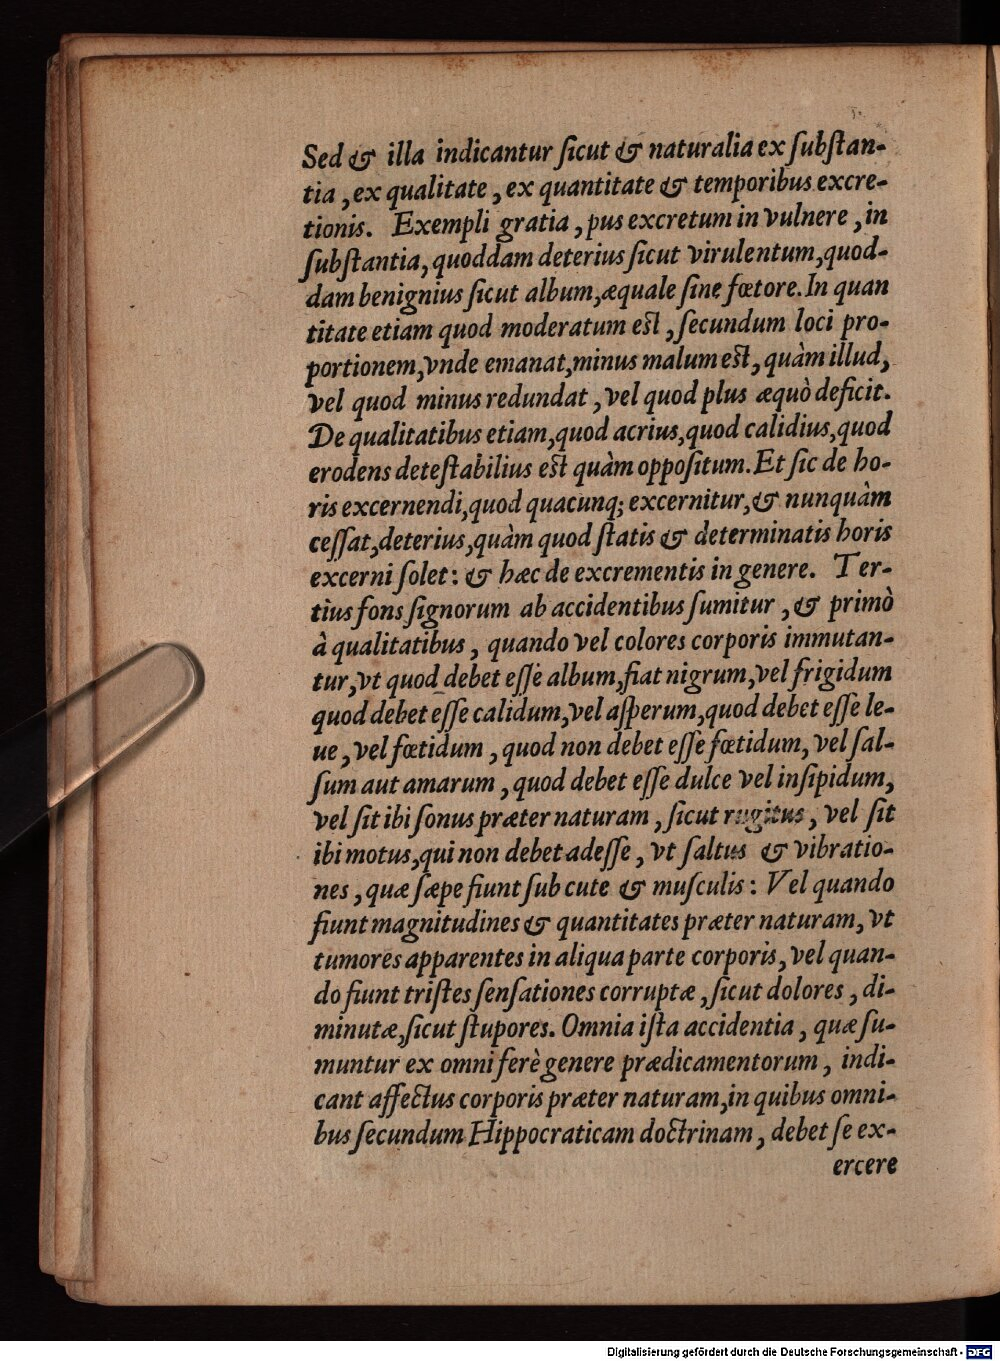 Sed & illa indicantur ſicut & naturalia ex ſubſtan-
tia, ex qualitate, ex quantitate & temporibus excre-
tionis. Exempli gratia, pus excretum in vulnere, in
ſubſtantia, quoddam deterius ſicut virulentum, quod-
dam benignius ſicut album, æquale ſine fœtore. In quan
titate etiam quod moderatum eſt, ſecundum loci pro-
portionem, vnde emanat, minus malum eſt, quàm illud,
vel quod minus redundat, vel quod plus æquò deficit.
De qualitatibus etiam, quod acrius, quod calidius, quod
erodens deteſtabilius eſt quàm oppoſitum. Et ſic de ho-
ris excernendi, quod quacunq; excernitur, & nunquàm
ceſſat, deterius, quàm quod ſtatis & determinatis horis
excerni ſolet: & hæc de excrementis in genere. Ter-
tius fons ſignorum ab accidentibus ſumitur, & primò
à qualitatibus, quando vel colores corporis immutan-
tur, vt quod debet eſſe album, fiat nigrum, vel frigidum
quod debet eſſe calidum, vel aſperum, quod debet eſſe le-
ue, vel fœtidum, quod non debet eſſe fœtidum, vel ſal-
ſum aut amarum, quod debet eſſe dulce vel inſipidum,
vel ſit ibi ſonus præter naturam, ſicut rugitus, vel ſit
ibi motus, qui non debet adeſſe, vt ſaltus & vibratio-
nes, quæ ſæpe fiunt ſub cute & muſculis: Vel quando
fiunt magnitudines & quantitates præter naturam, vt
tumores apparentes in aliqua parte corporis, vel quan-
do fiunt triſtes ſenſationes corruptæ, ſicut dolores, di-
minutæ, ſicut ſtupores. Omnia iſta accidentia, quæ ſu-
muntur ex omni ferè genere prædicamentorum, indi-
cant affectus corporis præter naturam, in quibus omni-
bus ſecundum Hippocraticam doctrinam, debet ſe ex-
ercere
Digitalisierung gefördert durch die Deutsche Forschungsgemeinschaft - DFG